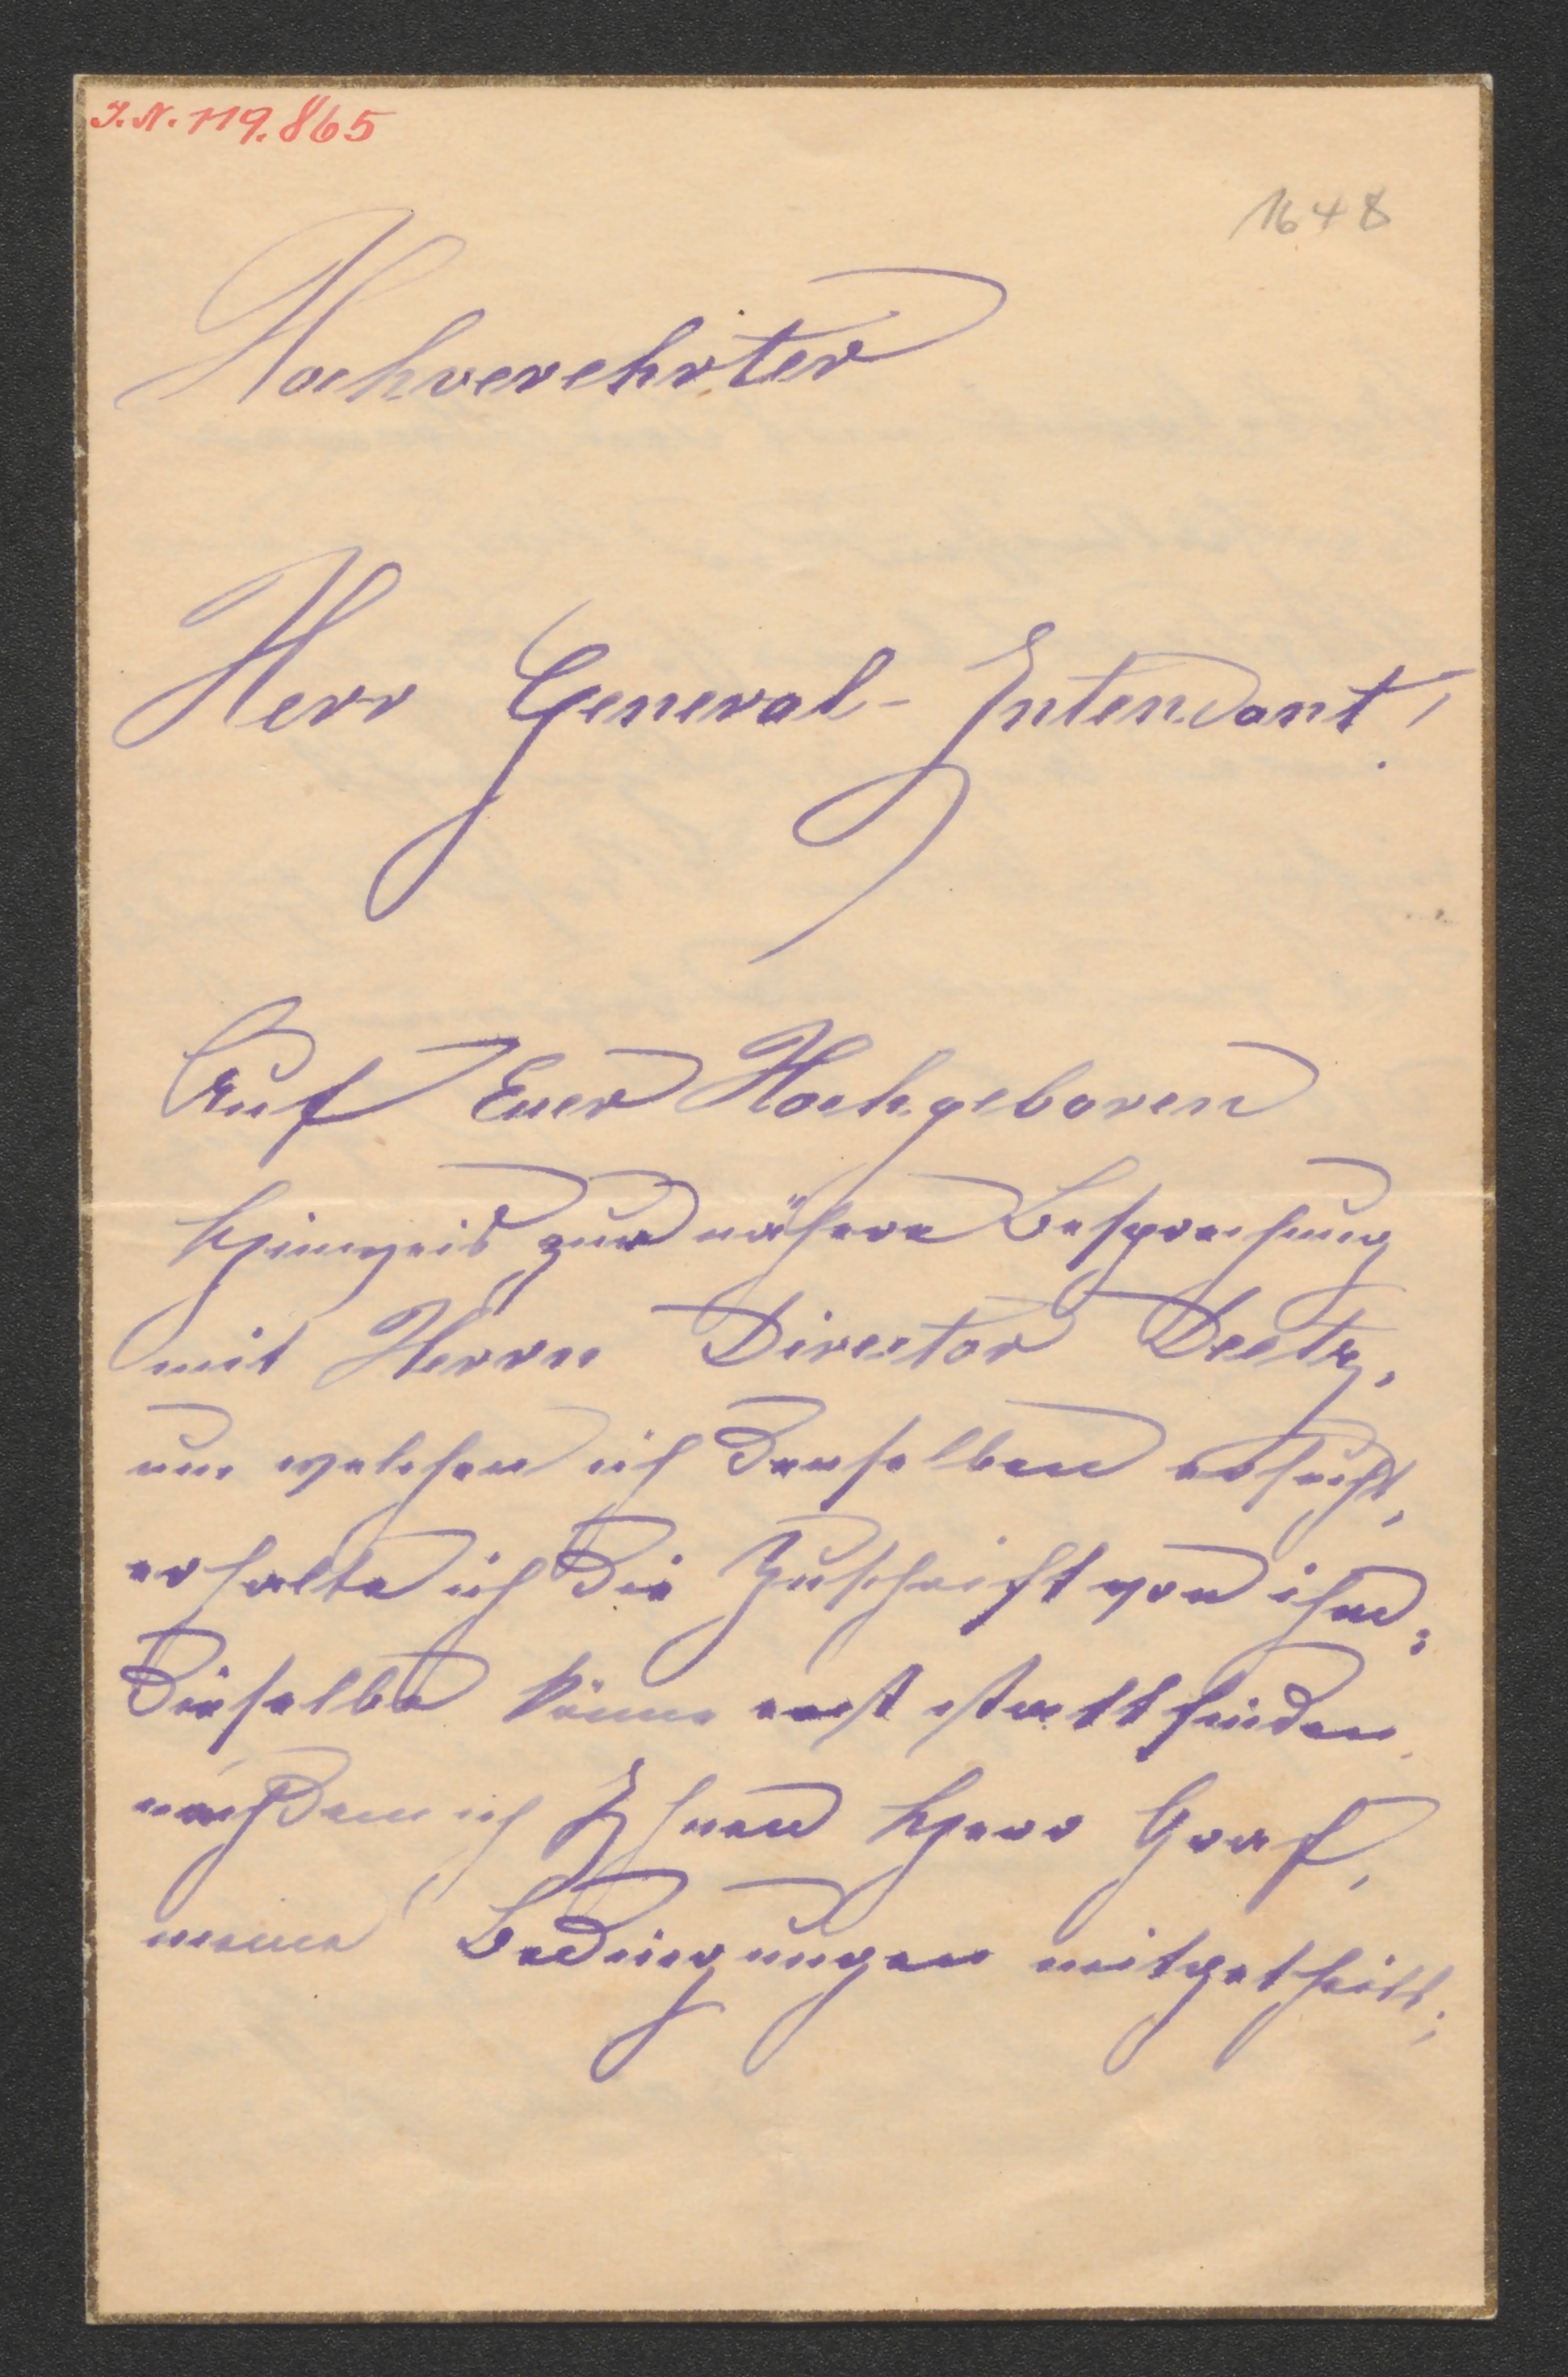 J.N. 119.865
1648
Hochverehrter
Herr General-Intendant!
Auf Euer Hochgeboren
Hinweis zur nähere Besprechung
mit Herrn Director Deetz,
um welchen ich denselben ersucht,
erhalte ich die Zuschrift von ihm;
dieselbe könne erst stattfinden
nachdem ich Ihnen Herr Graf,
meine Bedingungen mitgetheilt;